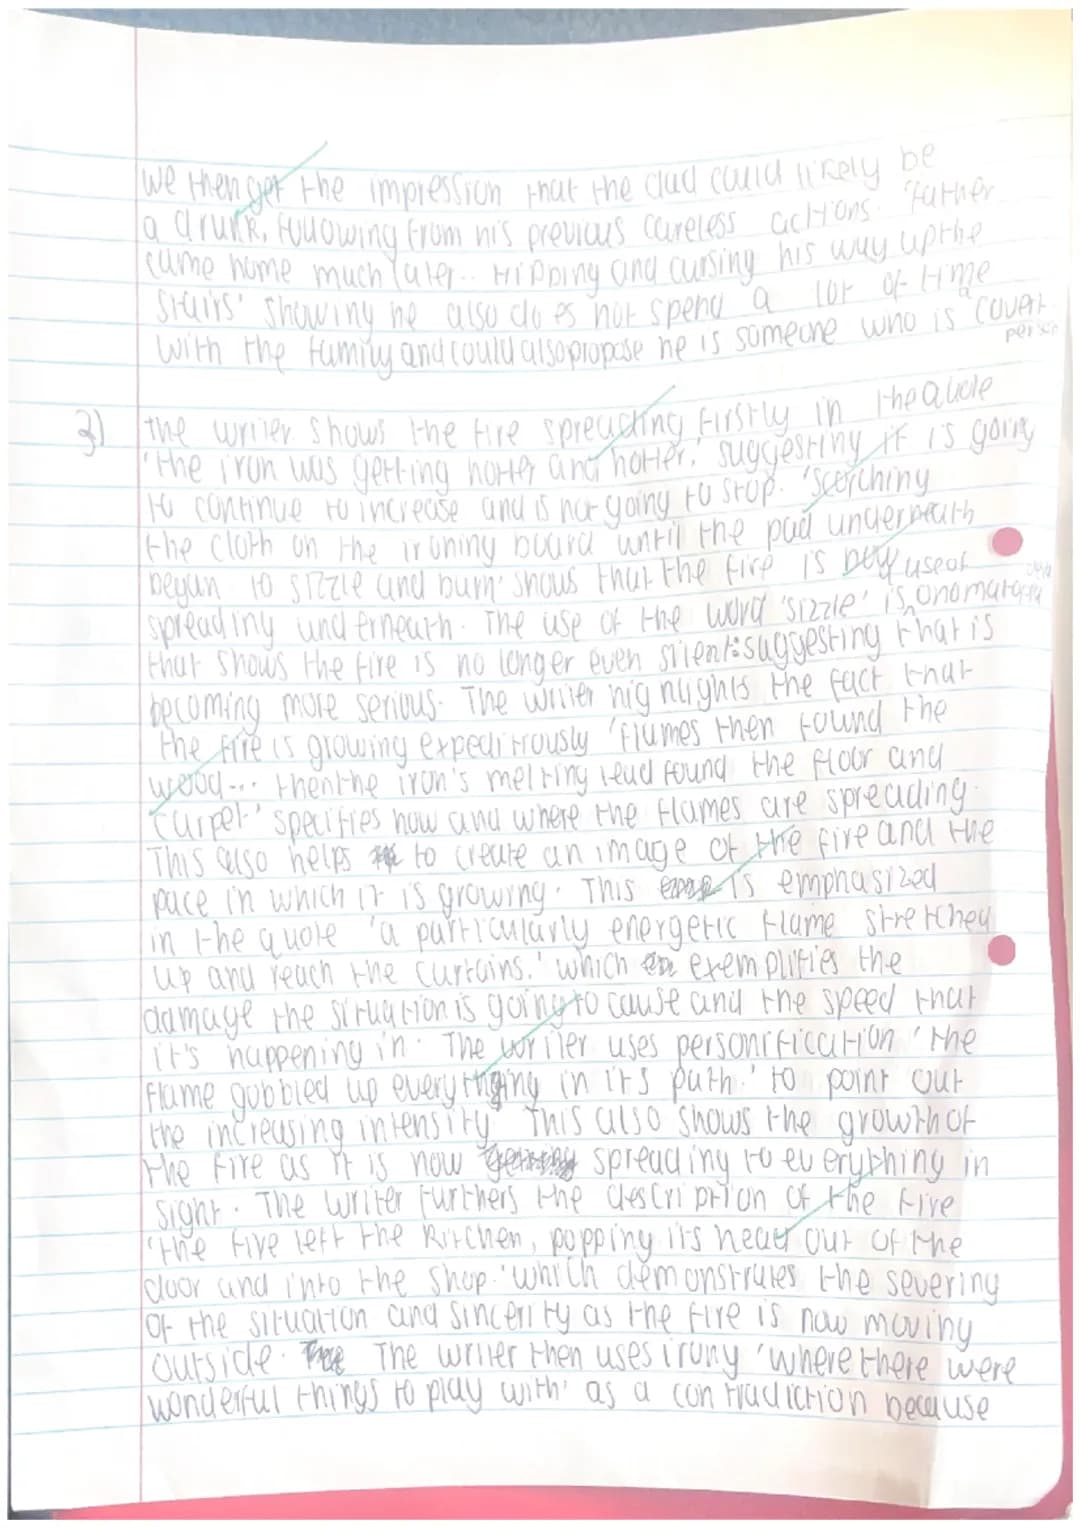 we then get the impression that the dad could likely be
a drunk, following from his previous careless actions. 'father
came home much later.. tripping and cursing his way up the
stairs' showing he also does not spend a lot of time
with the family and could also propose he is someone who is a covert
person
3) the writer shows the fire spreading firstly in the quote
'the iron was getting hotter and hotter,' suggesting it is going
to continue to increase and is not going to stop. 'scorching
the cloth on the ironing board until the pad underneath
began to sizzle and burn' shows that the fire is now
spreading underneath. The use of the word 'sizzle' is use of onomatopoeia
that shows the fire is no longer even silent: suggesting that is
becoming more serious. The writer highlights the fact that
the fire is growing expeditiously 'flames then found the
wood... then the iron's melting lead found the floor and
carpet.' specifies how and where the flames are spreading.
This also helps to create an image of the fire and the
pace in which it is growing. This is emphasized
in the quote 'a particularly energetic flame stretched
up and reach the curtains.' which exemplifies the
damage the situation is going to cause and the speed that
it's happening in. The writer uses personification 'the
flame gobbled up everything in its path.' to point out
the increasing intensity. This also shows the growth of
the fire as it is now spreading to everything in
sight. The writer furthers the description of the fire
'the fire left the kitchen, popping its head out of the
door and into the shop.' which demonstrates the severing
of the situation and sincerity as the fire is now moving
outside. The writer then uses irony 'where there were
wonderful things to play with' as a contradiction because